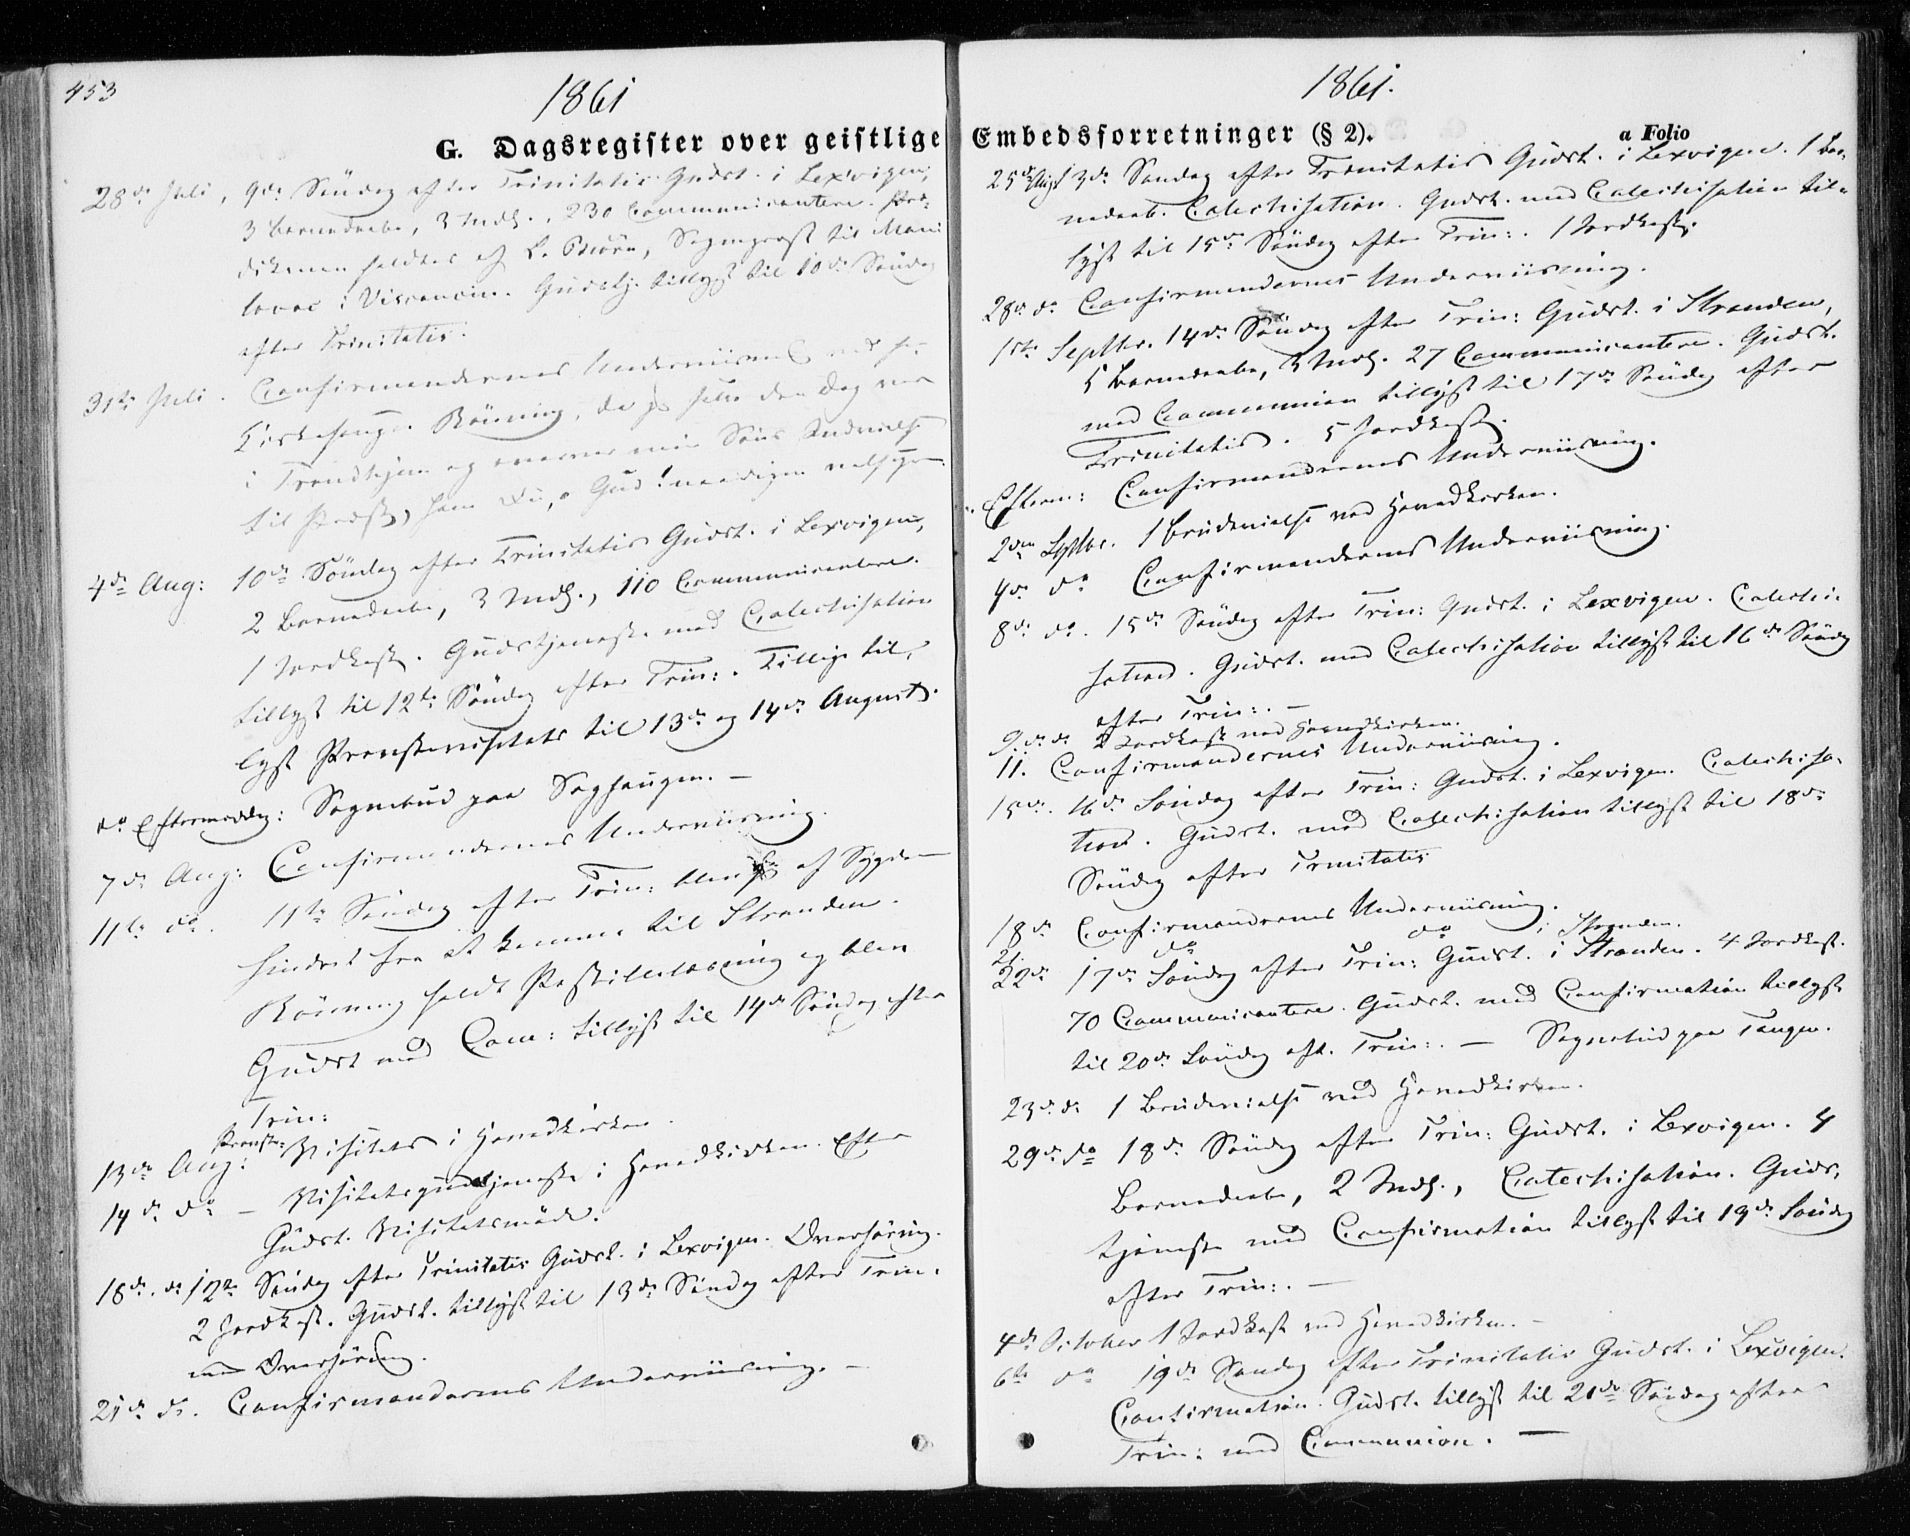 453
1861
G. Dagsregister over geistlige
28de Juli, 9de Söndag efter Trinitatis Gudst. i Lexvigen,
3 Barnedaabe, 3 Introd., 230 Communicantere. Præ-
dikenen holdtes af Sogneprest til
i Visconsin. Gudstj. tillyst til 10de Söndag
efter Trinitatis.
31te Juli. Confirmandernes Underviisning ved
Kirkesanger Rönning, da jeg selv den Dag var
i Trondhjem og overvar min Söns Indvielse
til Præst, ham Du, o Gud! naadigen velsigne.
4de Aug: 10de Söndag efter Trinitatis Gudst. i Lexvigen,
2 Barnedaabe, 3 Introd., 110 Communicantere.
1 Jordkast. Gudstjeneste med Catechisation
tillyst til 12te Söndag efter Trin:. Tillige til-
lyst Provstevisitats til 13de og 14de August.
do Eftermiddag: Sognebud paa Soghaugen. —
7de Aug: Confirmandernes Underviisning.
11te do. 11te Söndag efter Trin: blev jeg af Sygdom
hindret fra at komme til Stranden.
Rönning holdt Postillelæsning og blev
Gudst med Com: tillyst til 14de Söndag efter
Trin:
13de Aug: Provste-Visitats i Hovedkirken.
14de do — Visitatsgudstjeneste i Hovedkirken. Efter
Gudst. Visitatsmöde.
18de. do 12te Söndag efter Trinitatis Gudst. i Lexvigen. Overhöring.
2 Jordkast. Gudst. tillyst til 13de Söndag efter Trin.
med Overhöring.
21de do. Confirmandernes Underviisning. —
1861.
Embedsforretninger (§ 2).
a Folio
25de Augst 13de Söndag efter Trinitatis Gudst. i Lexvigen. 1 Bar-
nedaab. Catechisation. Gudst. med Catechisation til-
lyst til 15de Söndag efter Trin:. 1 Jordkast.
28de do Confirmandernes Underviisning.
1ste Septbr. 14de Söndag efter Trin: Gudst. i Stranden,
5 Barnedaabe, 3 Introd. 27 Communicantere. Gudst.
med Communion tillyst til 17de Söndag efter
Trinitatis. 5 Jordkast.
Efterm: Confirmandernes Underviisning.
2den Septbr. 1 Brudevielse ved Hovedkirken.
4de do Confirmandernes Underviisning.
8de do. 15de Söndag efter Trin: Gudst. i Lexvigen. Catechi-
sation. Gudst. med Catechisation tillyst til 16de Söndag
efter Trin:. —
9de do 2 Jordkast ved Hovedkirken.
11. Confirmandernes Underviisning.
15de. 16de Söndag efter Trin: Gudst. i Lexvigen. Catechisa-
tion. Gudst. med Catechisation tillyst til 18de
Söndag efter Trinitatis
18de Confirmandernes Underviisning.
21. do do i Stranden.
22de 17de Söndag efter Trin: Gudst. i Stranden. 4 Jordkast.
70 Communicantere. Gudst. med Confirmation tillyst
til 20de Söndag eft. Trin:. — Sognebud paa Tangen.
23de do 1 Brudevielse ved Hovedkirken.
29de do 18de Söndag efter Trin: Gudst. i Lexvigen. 4
Barnedaabe, 2 Introd., Catechisation. Guds-
tjeneste med Confirmation tillyst til 19de Söndag
efter Trin:. —
4de October 1 Jordkast ved Hovedkirken. —
6te do 19de Söndag efter Trinitatis Gudst. i Lexvigen.
Confirmation. Gudst. tillyst til 21de Söndag efter
Trin: med Communion. —